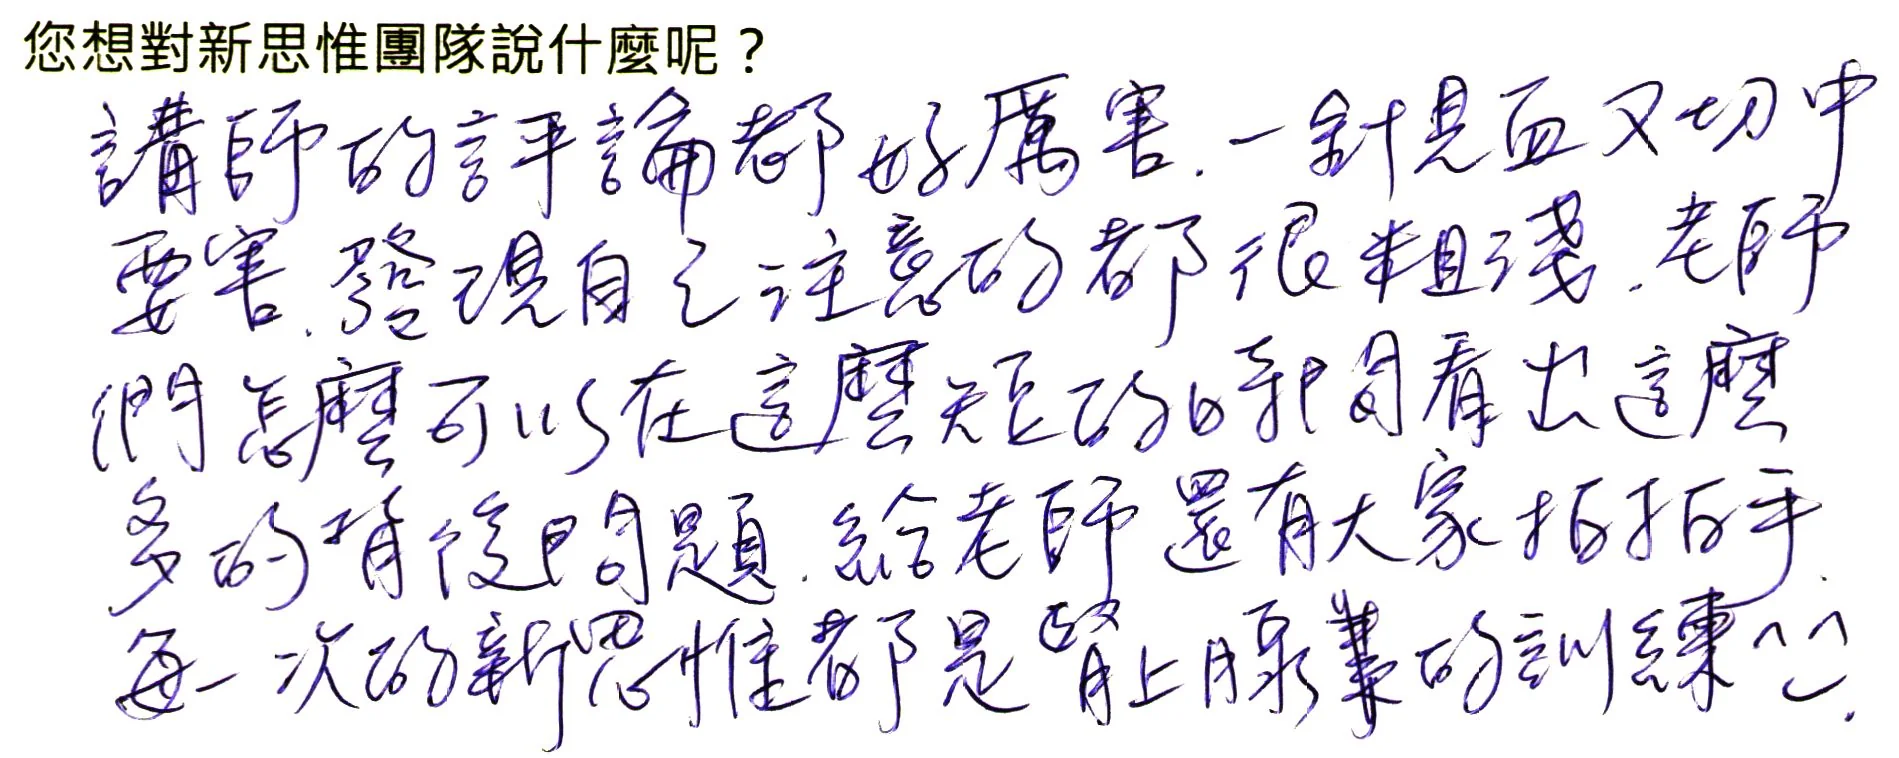 您想對新思惟團隊說什麼呢？
講師的評論都好厲害.一針見血又切中
要害.發現自己注意的都很粗淺.老師
們怎麼可以在這麼短的時間看出這麼
多的背後問題.給老師還有大家拍拍手.
每一次的新思惟都是腎上腺素的訓練^^.